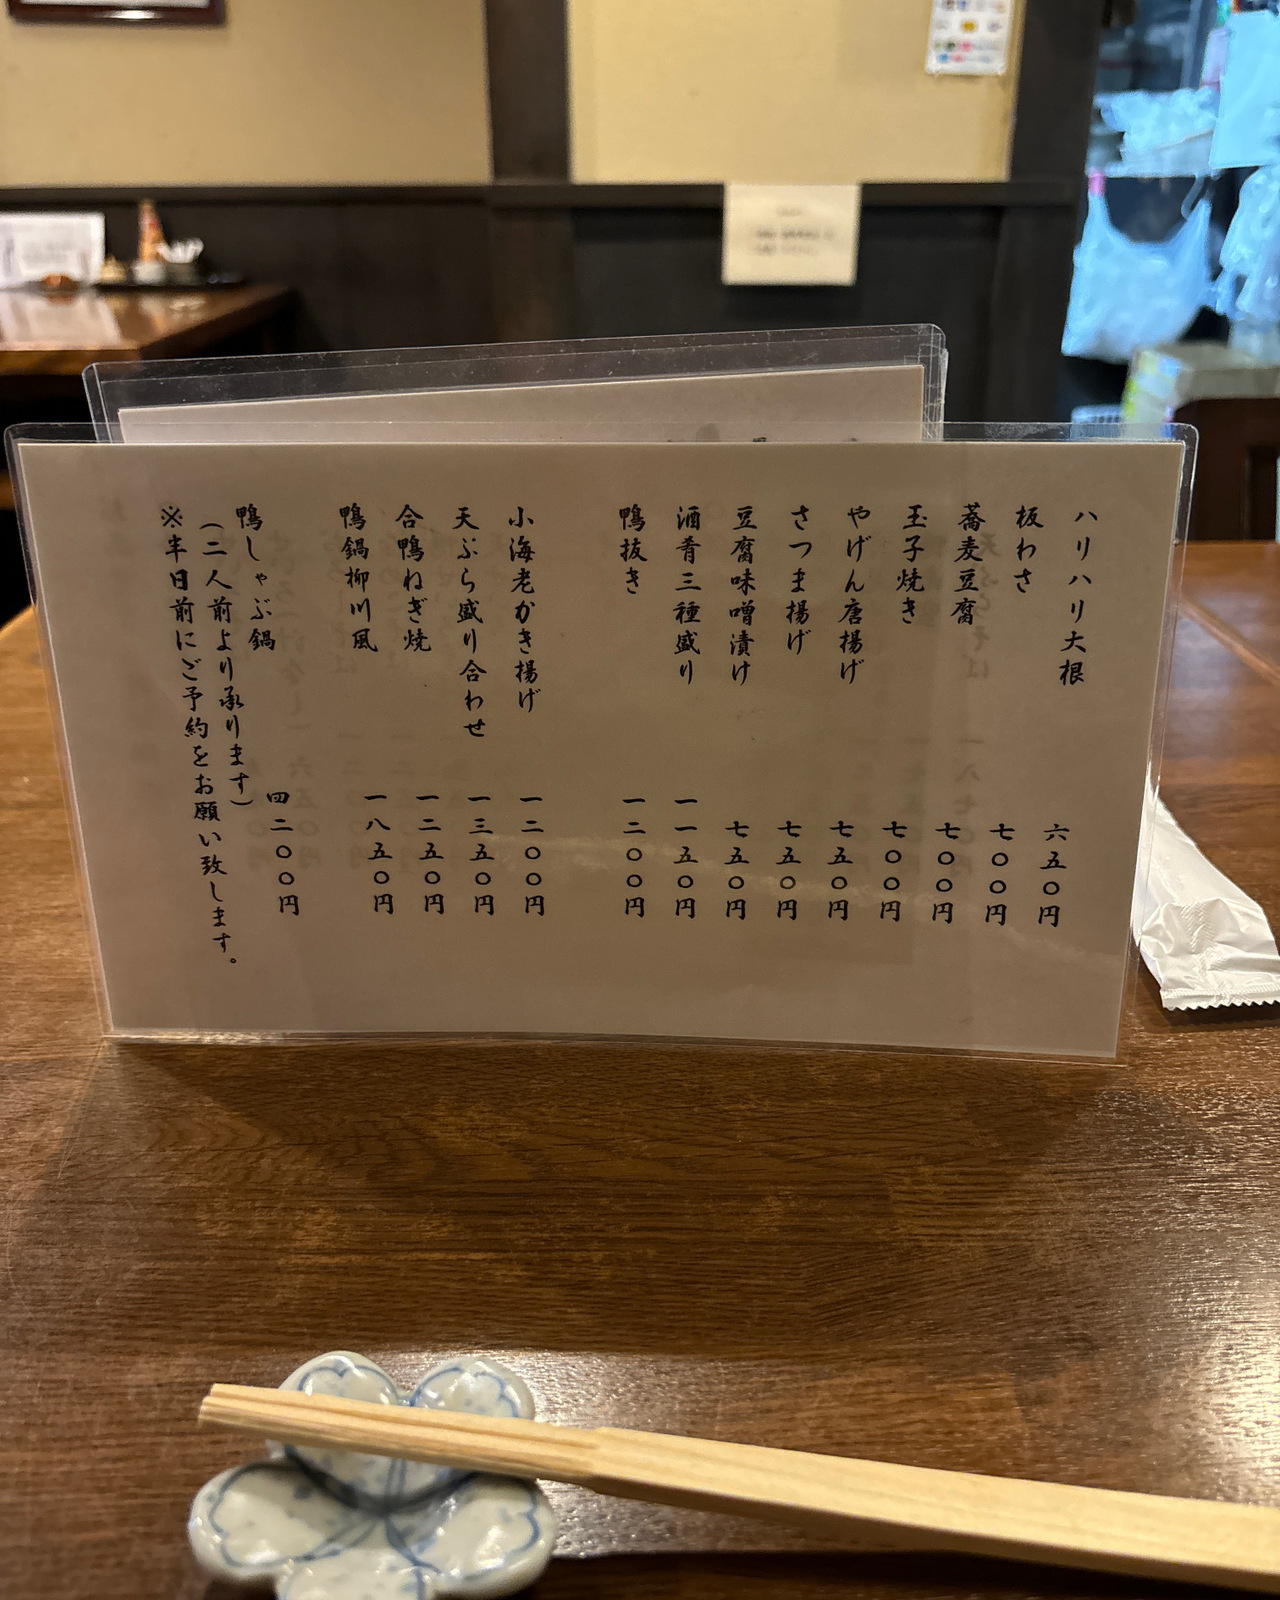 ハリハリ大根 六五〇円
板わさ 七〇〇円
蕎麦豆腐 七〇〇円
玉子焼き 七〇〇円
やげん唐揚げ 七五〇円
さつま揚げ 七五〇円
豆腐味噌漬け 七五〇円
酒肴三種盛り 一一五〇円
鴨抜き 一二〇〇円
小海老かき揚げ 一二〇〇円
天ぷら盛り合わせ 一三五〇円
合鴨ねぎ焼 一二五〇円
鴨鍋柳川風 一八五〇円
鴨しゃぶ鍋 四二〇〇円
(二人前より承ります)
※半日前にご予約をお願い致します。